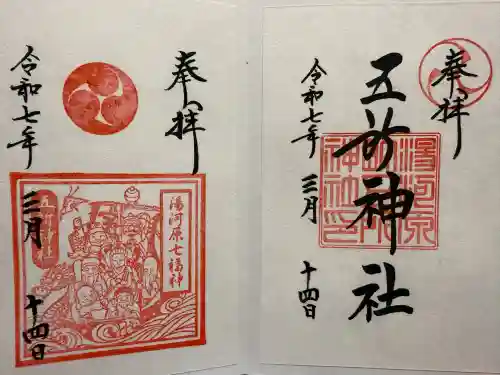 奉拝
五所神社
湯河原
五所神社
神社印
令和七年
三月
十四日
奉拝
湯河原七福神
五所神社
令和七年
三月
十四日